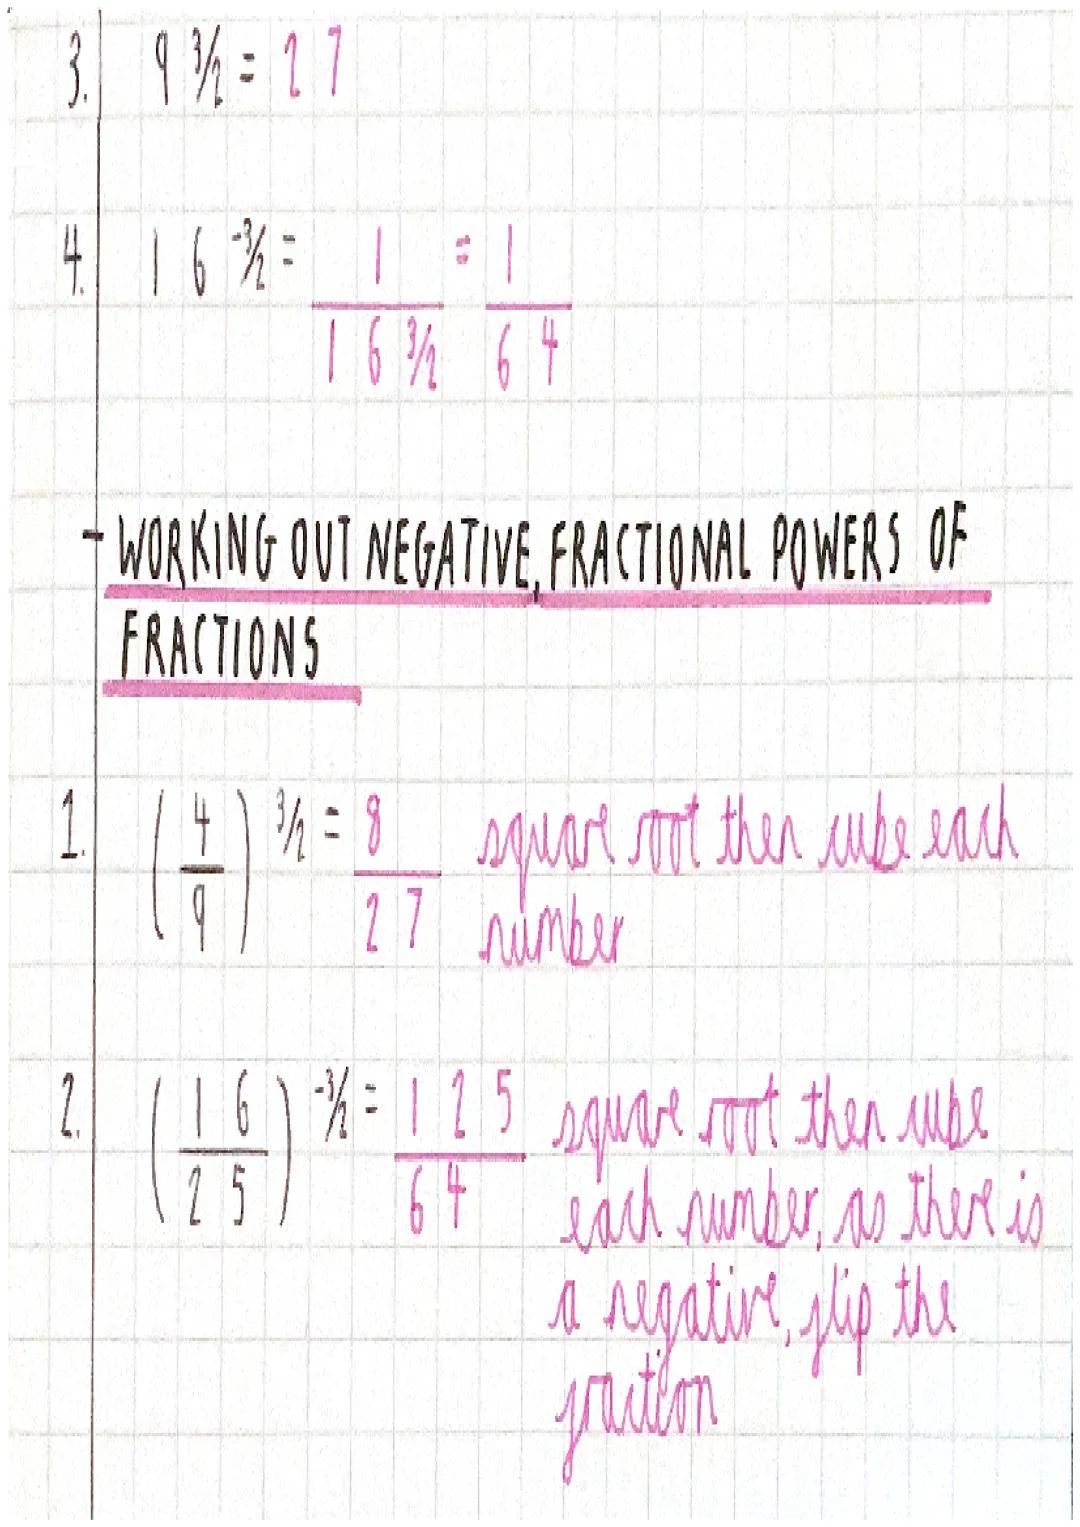 3. 9 3/2 = 27
4. 16 -3/2 = 1 = 1
16 3/2 64
- WORKING OUT NEGATIVE, FRACTIONAL POWERS OF
FRACTIONS
1. (4/9) 3/2 = 8/27 square root then cube each
number
2. (16/25) -3/2 = 125/64 square root then cube
each number, as there is
a negative, flip the
fraction